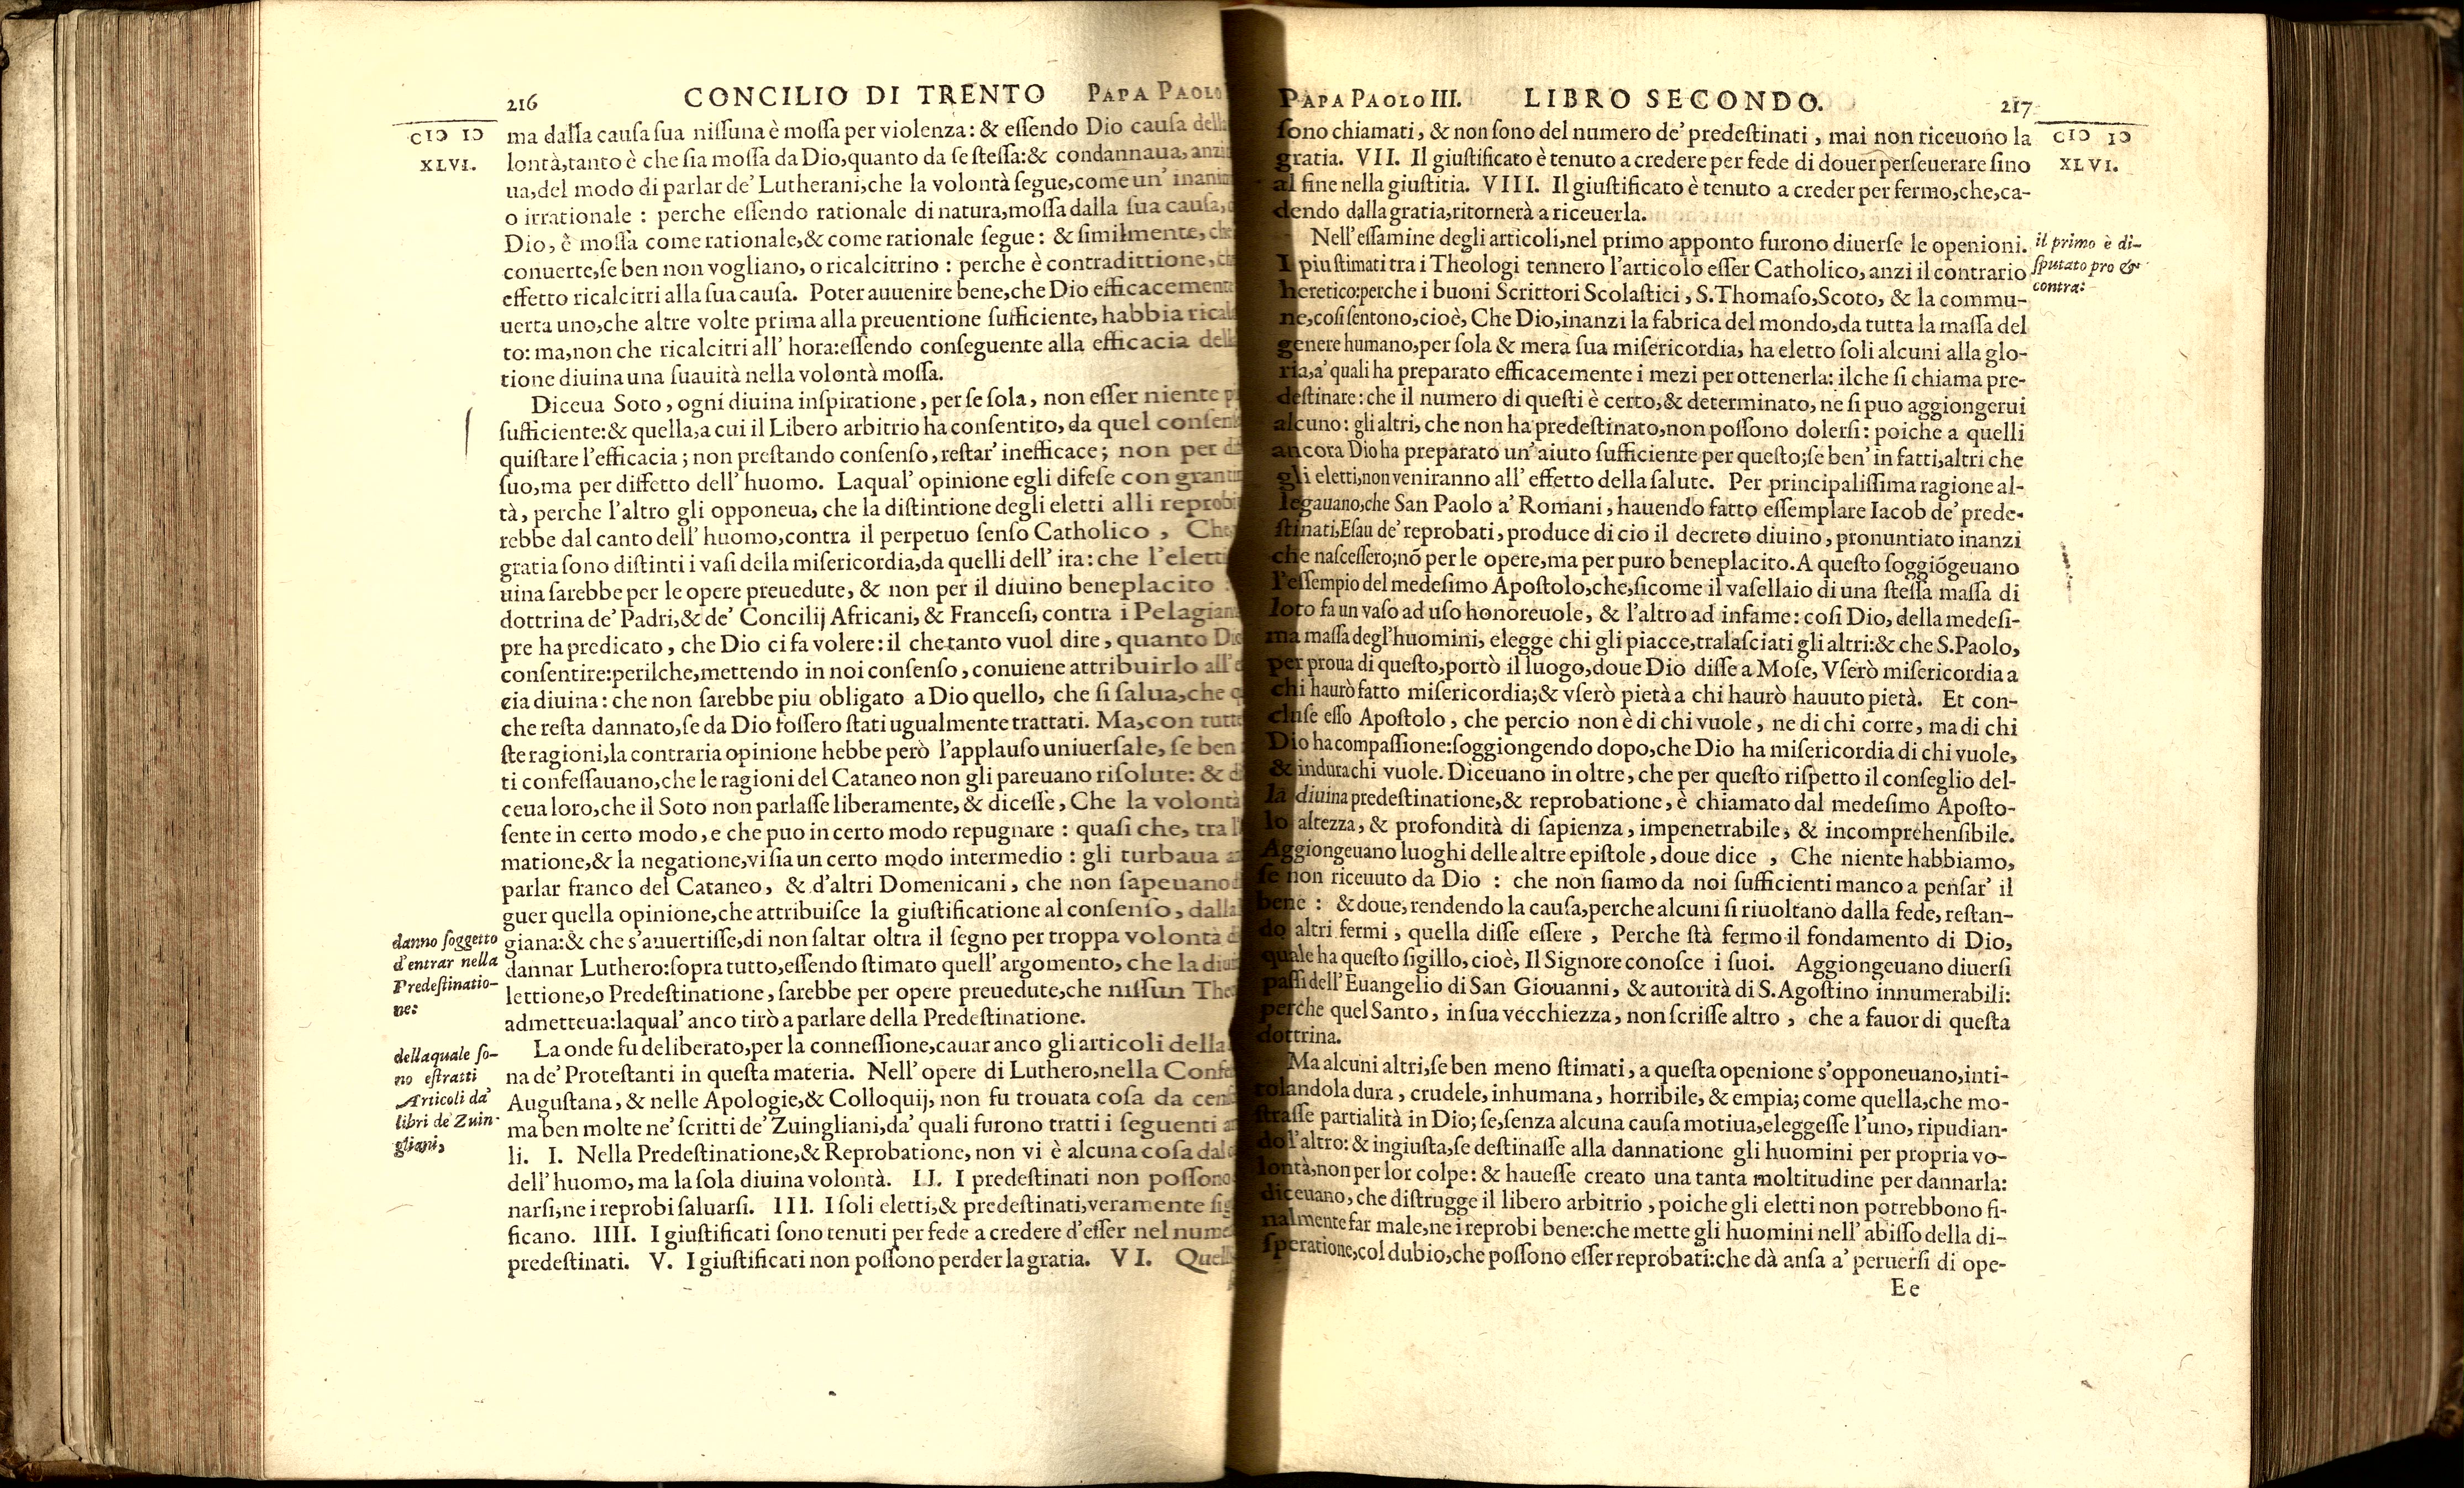 216 CONCILIO DI TRENTO PAPA PAOLO
CIↃ IↃ
XLVI.
ma dalla cauſa ſua niſſuna è moſſa per violenza: & eſſendo Dio cauſa della
lontà,tanto è che ſia moſſa da Dio,quanto da ſe ſteſſa:& condannaua, anzi
ua,del modo di parlar de' Lutherani,che la volontà ſegue,come un'
o irrationale : perche eſſendo rationale di natura,moſſa dalla ſua cauſa,
Dio, è moſſa come rationale,& come rationale ſegue: & ſimilmente, che
conuerte,ſe ben non vogliano, o ricalcitrino : perche è contradittione,
effetto ricalcitri alla ſua cauſa. Poter auuenire bene,che Dio efficacemente
uerta uno,che altre volte prima alla preuentione ſufficiente, habbia
to: ma,non che ricalcitri all' hora:eſſendo conſeguente alla efficacia
tione diuina una ſuauità nella volontà moſſa.
Diceua Soto, ogni diuina inſpiratione, per ſe ſola, non eſſer niente
ſufficiente:& quella,a cui il Libero arbitrio ha conſentito, da quel
quiſtare l'efficacia; non preſtando conſenſo, reſtar' inefficace; non per
ſuo,ma per diffetto dell' huomo. Laqual' opinione egli difeſe con gran
tà, perche l'altro gli opponeua, che la diſtintione degli eletti alli reprobi
rebbe dal canto dell' huomo,contra il perpetuo ſenſo Catholico , Che
gratia ſono diſtinti i vaſi della miſericordia,da quelli dell' ira: che l'eletti
uina ſarebbe per le opere preuedute, & non per il diuino beneplacito :
dottrina de' Padri,& de' Concilij Africani, & Franceſi, contra i Pelagiani
pre ha predicato, che Dio ci fa volere: il che tanto vuol dire, quanto
conſentire:perilche,mettendo in noi conſenſo, conuiene attribuirlo all'
cia diuina: che non ſarebbe piu obligato a Dio quello, che ſi ſalua,che
che reſta dannato,ſe da Dio foſſero ſtati ugualmente trattati. Ma,con tutte
ſte ragioni,la contraria opinione hebbe però l'applauſo uniuerſale, ſe ben
ti confeſſauano,che le ragioni del Cataneo non gli pareuano riſolute: &
ceua loro,che il Soto non parlaſſe liberamente, & diceſſe, Che la volontà
ſente in certo modo, e che puo in certo modo repugnare : quaſi che, tra
matione,& la negatione,vi ſia un certo modo intermedio : gli turbaua
parlar franco del Cataneo, & d'altri Domenicani, che non ſapeuano
guer quella opinione,che attribuiſce la giuſtificatione al conſenſo, dalla
danno ſoggetto
d'entrar nella
Predeſtinatio-
ne:
giana:& che s'auuertiſſe,di non ſaltar oltra il ſegno per troppa volontà
dannar Luthero:ſopra tutto,eſſendo ſtimato quell' argomento, che la
lettione,o Predeſtinatione, ſarebbe per opere preuedute,che niſſun
admetteua:laqual' anco tirò a parlare della Predeſtinatione.
dellaquale ſo-
no eſtratti
Articoli da'
libri de' Zuin-
gliani,
La onde fu deliberato,per la conneſſione,cauar anco gli articoli della
na de' Proteſtanti in queſta materia. Nell' opere di Luthero,nella
Auguſtana, & nelle Apologie,& Colloquij, non fu trouata coſa da
ma ben molte ne' ſcritti de' Zuingliani,da' quali furono tratti i ſeguenti
li. I. Nella Predeſtinatione,& Reprobatione, non vi è alcuna coſa dal
dell' huomo, ma la ſola diuina volontà. II. I predeſtinati non poſſono
narſi,ne i reprobi ſaluarſi. III. I ſoli eletti,& predeſtinati,veramente
ficano. IIII. I giuſtificati ſono tenuti per fede a credere d'eſſer nel
predeſtinati. V. I giuſtificati non poſſono perder la gratia. VI.
PAPA PAOLO III. LIBRO SECONDO. 217
CIↃ IↃ
XLVI.
ſono chiamati, & non ſono del numero de' predeſtinati, mai non riceuono la
gratia. VII. Il giuſtificato è tenuto a credere per fede di douer perſeuerare ſino
al fine nella giuſtitia. VIII. Il giuſtificato è tenuto a creder per fermo,che,ca-
dendo dalla gratia,ritornerà a riceuerla.
Nell' eſſamine degli articoli,nel primo apponto furono diuerſe le openioni.
il primo è di-
ſputato pro &
contra:
I piu ſtimati tra i Theologi tennero l'articolo eſſer Catholico, anzi il contrario
heretico:perche i buoni Scrittori Scolaſtici, S.Thomaſo,Scoto, & la commu-
ne,coſi ſentono,cioè, Che Dio,inanzi la fabrica del mondo,da tutta la maſſa del
genere humano,per ſola & mera ſua miſericordia, ha eletto ſoli alcuni alla glo-
ria,a' quali ha preparato efficacemente i mezi per ottenerla: ilche ſi chiama pre-
deſtinare: che il numero di queſti è certo,& determinato, ne ſi puo aggiongerui
alcuno: gli altri, che non ha predeſtinato,non poſſono dolerſi: poiche a quelli
ancora Dio ha preparato un' aiuto ſufficiente per queſto;ſe ben' in fatti,altri che
gli eletti,non veniranno all' effetto della ſalute. Per principaliſſima ragione al-
legauano,che San Paolo a' Romani, hauendo fatto eſſemplare Iacob de' prede-
ſtinati,Eſau de' reprobati, produce di cio il decreto diuino, pronuntiato inanzi
che naſceſſero;nõ per le opere,ma per puro beneplacito. A queſto ſoggiõgeuano
l'eſſempio del medeſimo Apoſtolo,che,ſicome il vaſellaio di una ſteſſa maſſa di
loto fa un vaſo ad uſo honoreuole, & l'altro ad infame: coſi Dio, della medeſi-
ma maſſa degl'huomini, elegge chi gli piacce,tralaſciati gli altri:& che S.Paolo,
per proua di queſto,portò il luogo,doue Dio diſſe a Moſe, Vſerò miſericordia a
chi haurò fatto miſericordia;& vſerò pietà a chi haurò hauuto pietà. Et con-
cluſe eſſo Apoſtolo, che percio non è di chi vuole, ne di chi corre, ma di chi
Dio ha compaſſione:ſoggiongendo dopo,che Dio ha miſericordia di chi vuole,
& indura chi vuole. Diceuano in oltre, che per queſto riſpetto il conſeglio del-
la diuina predeſtinatione,& reprobatione, è chiamato dal medeſimo Apoſto-
lo altezza, & profondità di ſapienza, impenetrabile, & incomprehenſibile.
Aggiongeuano luoghi delle altre epiſtole, doue dice , Che niente habbiamo,
ſe non riceuuto da Dio : che non ſiamo da noi ſufficienti manco a penſar' il
bene : & doue,rendendo la cauſa,perche alcuni ſi riuoltano dalla fede, reſtan-
do altri fermi, quella diſſe eſſere , Perche ſtà fermo il fondamento di Dio,
quale ha queſto ſigillo, cioè, Il Signore conoſce i ſuoi. Aggiongeuano diuerſi
paſſi dell' Euangelio di San Giouanni, & autorità di S. Agoſtino innumerabili:
perche quel Santo, in ſua vecchiezza, non ſcriſſe altro , che a fauor di queſta
dottrina.
Ma alcuni altri,ſe ben meno ſtimati, a queſta openione s'opponeuano,inti-
tolandola dura, crudele, inhumana, horribile, & empia; come quella,che mo-
ſtraſſe partialità in Dio; ſe,ſenza alcuna cauſa motiua,eleggeſſe l'uno, ripudian-
do l'altro: & ingiuſta,ſe deſtinaſſe alla dannatione gli huomini per propria vo-
lontà,non per lor colpe: & haueſſe creato una tanta moltitudine per dannarla:
diceuano, che diſtrugge il libero arbitrio, poiche gli eletti non potrebbono fi-
nalmente far male,ne i reprobi bene:che mette gli huomini nell' abiſſo della di-
ſperatione,col dubio,che poſſono eſſer reprobati:che dà anſa a' peruerſi di ope-
Ee